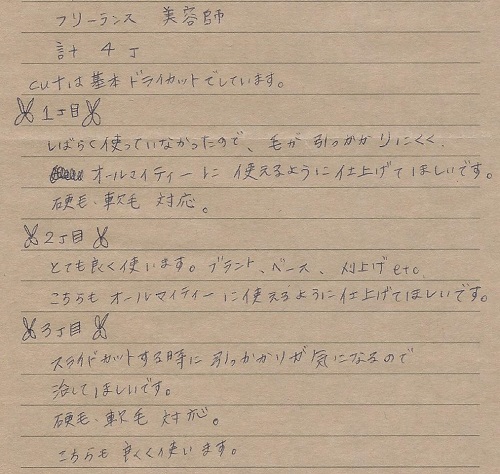 フリーランス 美容師
計 4丁
cutは基本ドライカットでしています。
1丁目
しばらく使っていなかったので、毛が引っかかりにくく、
オールマイティーに使えるように仕上げてほしいです。
硬毛・軟毛 対応。
2丁目
とても良く使います。ブラント、ベース、刈上げetc.
こちらもオールマイティーに使えるように仕上げてほしいです。
3丁目
スライドカットする時に引っかかりが気になるので
治してほしいです。
硬毛・軟毛 対応。
こちらも良くく使います。